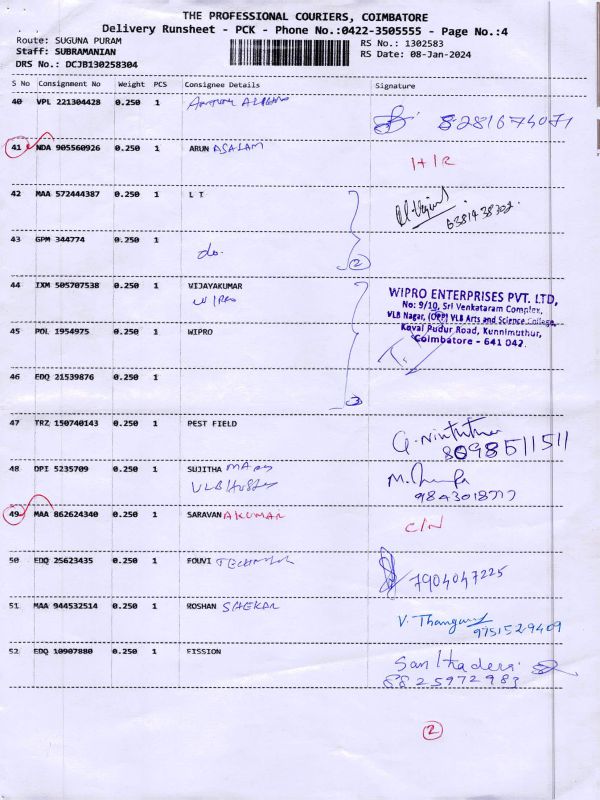 THE PROFESSIONAL COURIERS, COIMBATORE
Delivery Runsheet - PCK - Phone No.:0422-3505555 - Page No.:4
Route: SUGUNA PURAM
RS No.: 1302583
Staff: SUBRAMANIAN
RS Date: 08-Jan-2024
DRS No.: DCJB130258304
S No Consignment No Weight PCS Consignee Details Signature
40 VPL 221304428 0.250 1
8281674071
41 NDA 905560926 0.250 1 ARUN ASALAM
42 MAA 572444387 0.250 1 L T
6381438702.
43 GPM 344774 0.250 1
do.
2
44 IXM 505707538 0.250 1 VIJAYAKUMAR
WIPRO
WIPRO ENTERPRISES PVT. LTD,
No: 9/10, Sri Venkataram Complex,
VLB Nagar, (OPP) VLB Arts and Science College,
Kovai Pudur Road, Kunnimuthur,
Coimbatore - 641 042.
45 POL 1954975 0.250 1 WIPRO
46 EDQ 21539876 0.250 1
3
47 TRZ 150740143 0.250 1 PEST FIELD
8098511511
48 DPI 5235709 0.250 1 SUJITHA MARY
9843018777
49 MAA 862624340 0.250 1 SARAVAN AKUMAR
C/N
50 EDQ 25623435 0.250 1 FOUVI
7904047225
51 MAA 944532514 0.250 1 ROSHAN SHEKAR
9751529409
52 EDQ 10907880 0.250 1 FISSION
8825972983
2